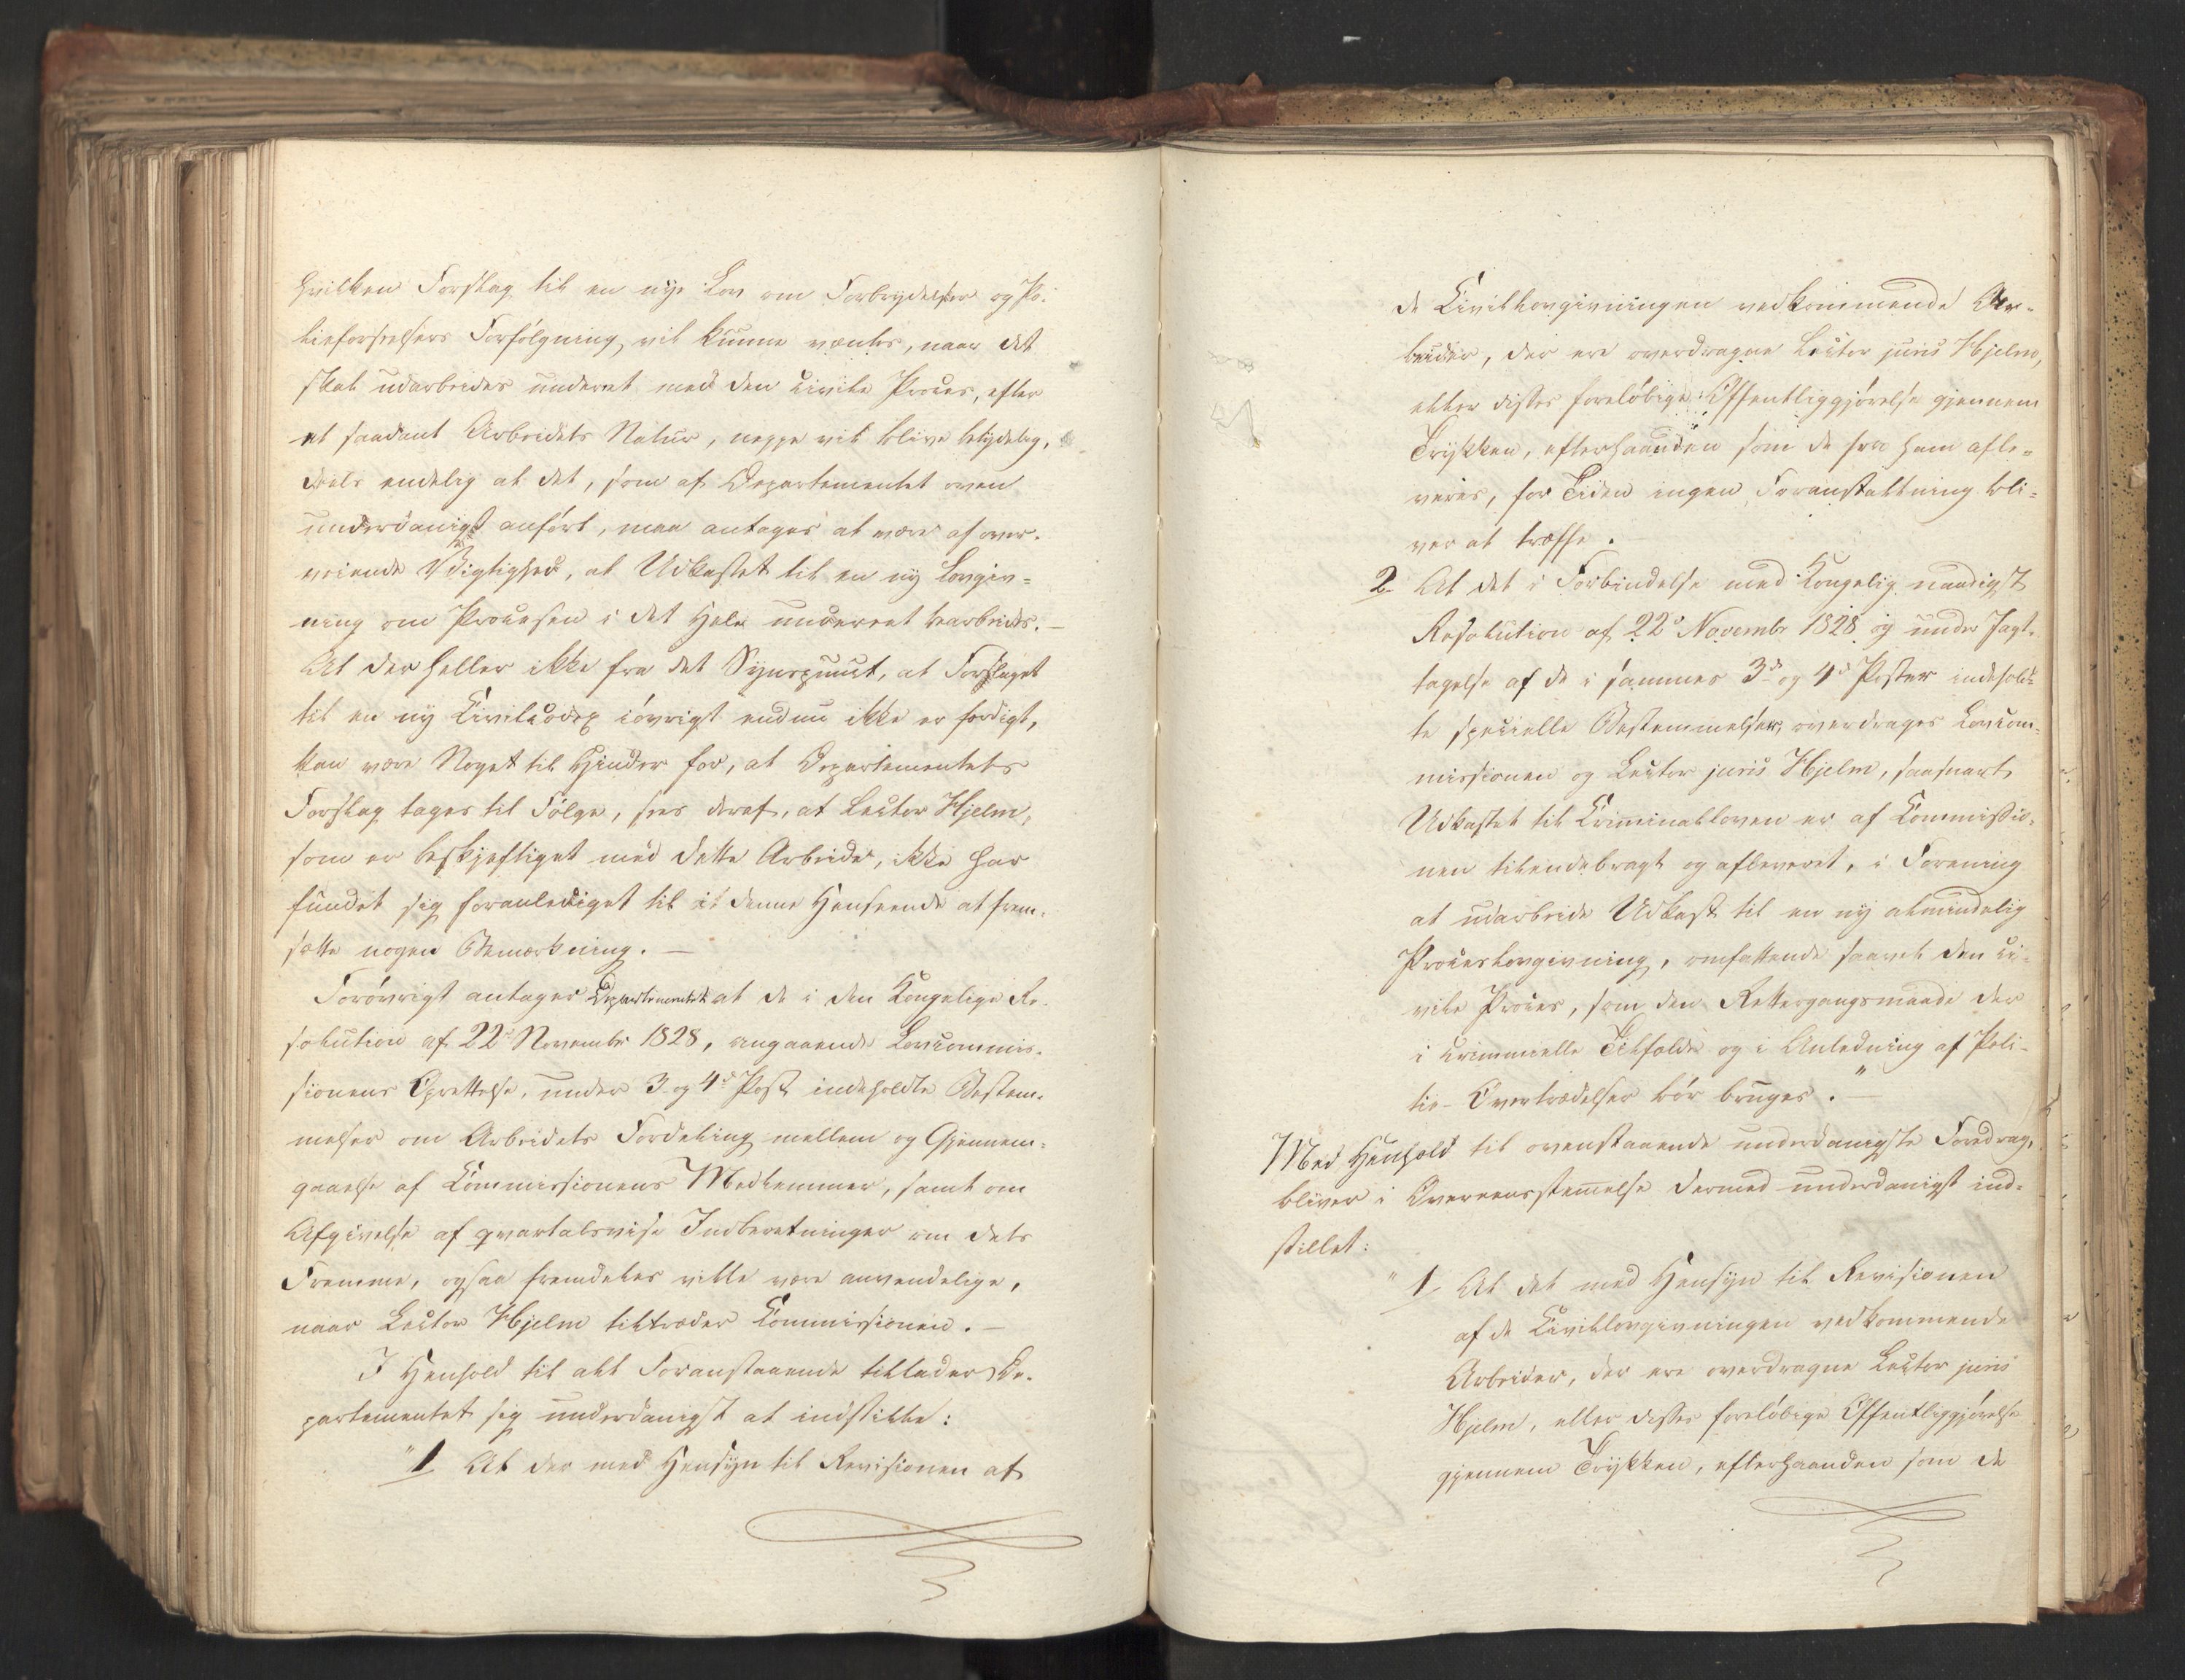 hvilken Forslag til en nye Lov om Forbrydelser og Po-
lieforseelsers Forfølgning, vil kunne ventes, naar det
skal udarbeides underet med den civile Proces, efter
et saadant Arbeidets Natur, neppe vil blive betydelig,
deels endelig at det, som af Departementet oven
underdanigst anført, maa antages at være af over-
veiende Vigtighed, at Udkastet til en ny Lovgiv-
ning om Processen i det Hele underet bearbeides. —
At der heller ikke fra det Synspunct, at Forslaget
til en ny Civilcodex iøvrigt endnu ikke er færdigt,
kan være Noget til Hinder for, at Departementets
Forslag tages til Følge, sees deraf, at Lector Hjelm,
som er beskjeftiget med dette Arbeide, ikke har
fundet sig foranlediget til i denne Henseende at frem-
sætte nogen Bemærkning. —
Forøvrigt antager Departementet at de i den Kongelige Re-
solution af 22de Novembr 1828, angaaende Lovcommis-
sionens Oprettelse, under 3 og 4de Post indeholdte Bestem-
melser om Arbeidets Fordeling mellem og Gjennem-
gaaelse af Commissionens Medlemmer, samt om
Afgivelse af qvartalsvise Indberetninger om dets
Fremme, ogsaa fremdeles ville være anvendelige,
naar Lector Hjelm tiltræder Commissionen. —
I Henhold til alt Foranstaaende tillader De-
partementet sig underdanigst at indstille:
"1 At der med Hensyn til Revisionen af
de Civillovgivningen vedkommende Ar-
beider, der ere overdragne Lector juris Hjelm,
eller disses foreløbige Offentliggjørelse gjennem
Trykken, efterhaanden som de fra ham afle-
veres, for Tiden ingen Foranstaltning bli-
ver at træffe.
2. At det i Forbindelse med Kongelig naadigst
Resolution af 22de Novembr 1828 og under Iagt-
tagelse af de i sammes 3de og 4de Poster indehold-
te specielle Bestemmelser, overdrages Lovcom-
missionen og Lector juris Hjelm, saasnart
Udkastet til Criminalloven er af Commissio-
nen tilendebragt og afleveret, i Forening
at udarbeide Udkast til en ny almindelig
Proceslovgivning, omfattende saavel den ci-
vile Proces, som den Rettergangsmaade der
i criminelle Tilfælde og i Anledning af Poli-
tie-Overtrædelser bør bruges." —
Med Henhold til ovenstaaende underdanigste Foredrag,
bliver i Overeensstemelse dermed underdanigst ind-
stillet:
"1 At det med Hensyn til Revisionen
af de Civillovgivningen vedkommende
Arbeider, der ere overdragne Lector juris
Hjelm, eller disses foreløbige Offentliggjørelse
gjennem Trykken, efterhaanden som de